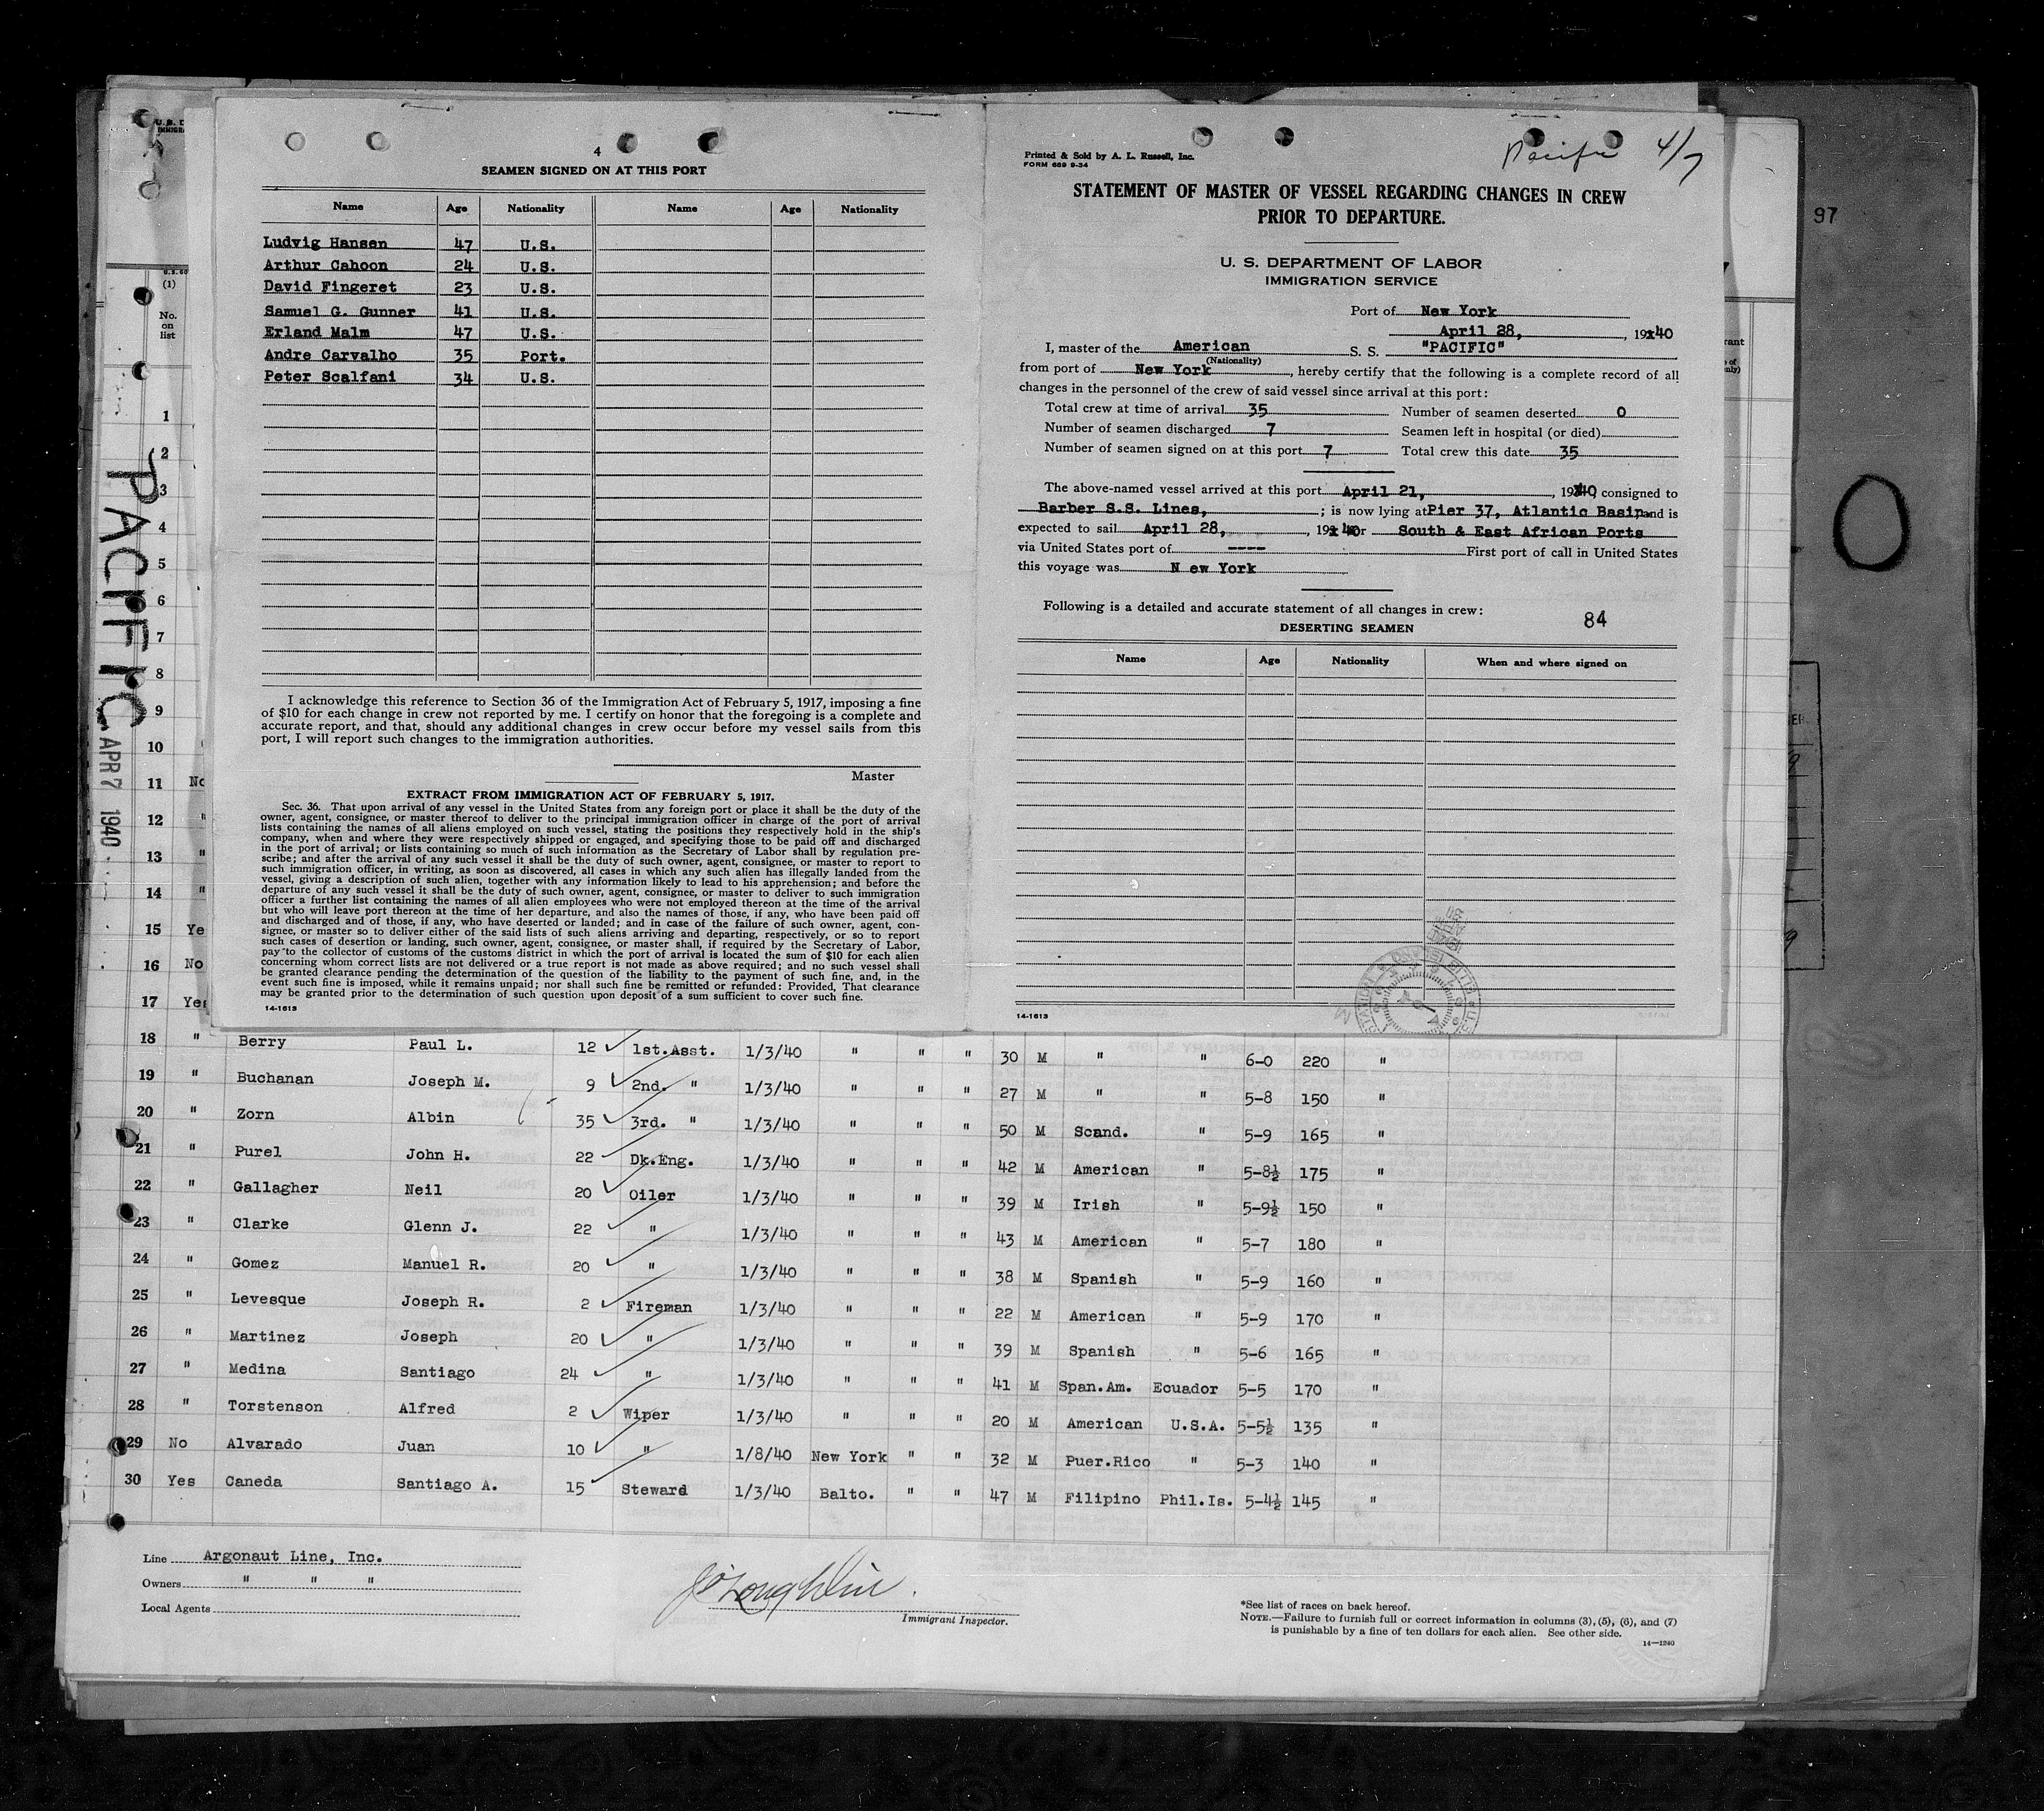 4
SEAMEN SIGNED ON AT THIS PORT
Name Age Nationality Name Age Nationality
Ludvig Hansen 47 U.S.
Arthur Cahoon 24 U.S.
David Fingeret 23 U.S.
Samuel G. Gunner 41 U.S.
Erland Malm 47 U.S.
Andre Carvalho 35 Port.
Peter Scalfani 34 U.S.
I acknowledge this reference to Section 36 of the Immigration Act of February 5, 1917, imposing a fine
of $10 for each change in crew not reported by me. I certify on honor that the foregoing is a complete and
accurate report, and that, should any additional changes in crew occur before my vessel sails from this
port, I will report such changes to the immigration authorities.
Master
EXTRACT FROM IMMIGRATION ACT OF FEBRUARY 5, 1917.
Sec. 36. That upon arrival of any vessel in the United States from any foreign port or place it shall be the duty of the
owner, agent, consignee, or master thereof to deliver to the principal immigration officer in charge of the port of arrival
lists containing the names of all aliens employed on such vessel, stating the positions they respectively hold in the ship's
company, when and where they were respectively shipped or engaged, and specifying those to be paid off and discharged
in the port of arrival; or lists containing so much of such information as the Secretary of Labor shall by regulation pre-
scribe; and after the arrival of any such vessel it shall be the duty of such owner, agent, consignee, or master to report to
such immigration officer, in writing, as soon as discovered, all cases in which any such alien has illegally landed from the
vessel, giving a description of such alien, together with any information likely to lead to his apprehension; and before the
departure of any such vessel it shall be the duty of such owner, agent, consignee, or master to deliver to such immigration
officer a further list containing the names of all alien employees who were not employed thereon at the time of the arrival
but who will leave port thereon at the time of her departure, and also the names of those, if any, who have been paid off
and discharged and of those, if any, who have deserted or landed; and in case of the failure of such owner, agent, con-
signee, or master so to deliver either of the said lists of such aliens arriving and departing, respectively, or so to report
such cases of desertion or landing, such owner, agent, consignee, or master shall, if required by the Secretary of Labor,
pay to the collector of customs of the customs district in which the port of arrival is located the sum of $10 for each alien
concerning whom correct lists are not delivered or a true report is not made as above required; and no such vessel shall
be granted clearance pending the determination of the question of the liability to the payment of such fine, and, in the
event such fine is imposed, while it remains unpaid; nor shall such fine be remitted or refunded: Provided, That clearance
may be granted prior to the determination of such question upon deposit of a sum sufficient to cover such fine.
14-1613
Pacific 4/7
Printed & Sold by A. L. Russell, Inc.
FORM 689 9-34
STATEMENT OF MASTER OF VESSEL REGARDING CHANGES IN CREW
PRIOR TO DEPARTURE.
U. S. DEPARTMENT OF LABOR
IMMIGRATION SERVICE
Port of New York
April 28, , 1940
I, master of the American S. S. "PACIFIC"
(Nationality)
from port of New York , hereby certify that the following is a complete record of all
changes in the personnel of the crew of said vessel since arrival at this port:
Total crew at time of arrival 35 Number of seamen deserted 0
Number of seamen discharged 7 Seamen left in hospital (or died)
Number of seamen signed on at this port 7 Total crew this date 35
The above-named vessel arrived at this port April 21, , 1940, consigned to
Barber S.S. Lines, ; is now lying at Pier 37, Atlantic Basin and is
expected to sail April 28, , 1940 for South & East African Ports
via United States port of ---- First port of call in United States
this voyage was N ew York
Following is a detailed and accurate statement of all changes in crew:
84
DESERTING SEAMEN
Name Age Nationality When and where signed on
14-1613
97
O
PACIFIC APR 7 1940
(1)
No.
on
list
1
2
3
4
5
6
7
8
9
10
11 No
12 "
13 "
14 "
15 Ye
16 No
17 Yes
18 " Berry Paul L. 12 1st.Asst. 1/3/40 " " " 30 M " " 6-0 220 "
19 " Buchanan Joseph M. 9 2nd. " 1/3/40 " " " 27 M " " 5-8 150 "
20 " Zorn Albin 35 3rd. " 1/3/40 " " " 50 M Scand. " 5-9 165 "
21 " Purel John H. 22 Dk.Eng. 1/3/40 " " " 42 M American " 5-8½ 175 "
22 " Gallagher Neil 20 Oiler 1/3/40 " " " 39 M Irish " 5-9½ 150 "
23 " Clarke Glenn J. 22 " 1/3/40 " " " 43 M American " 5-7 180 "
24 " Gomez Manuel R. 20 " 1/3/40 " " " 38 M Spanish " 5-9 160 "
25 " Levesque Joseph R. 2 Fireman 1/3/40 " " " 22 M American " 5-9 170 "
26 " Martinez Joseph 20 " 1/3/40 " " " 39 M Spanish " 5-6 165 "
27 " Medina Santiago 24 " 1/3/40 " " " 41 M Span.Am. Ecuador 5-5 170 "
28 " Torstenson Alfred 2 Wiper 1/3/40 " " " 20 M American U.S.A. 5-5½ 135 "
29 No Alvarado Juan 10 " 1/8/40 New York " " 32 M Puer.Rico " 5-3 140 "
30 Yes Caneda Santiago A. 15 Steward 1/3/40 Balto. " " 47 M Filipino Phil.Is. 5-4½ 145 "
Line Argonaut Line, Inc.
Owners " " "
Local Agents
J O'Loughlin
Immigrant Inspector.
*See list of races on back hereof.
NOTE.—Failure to furnish full or correct information in columns (3), (5), (6), and (7)
is punishable by a fine of ten dollars for each alien. See other side.
14-1240